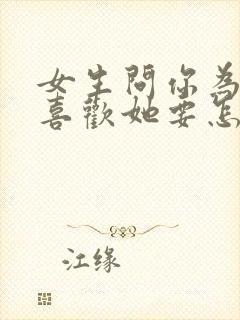 女生問你為
喜歡她要怎
江缘